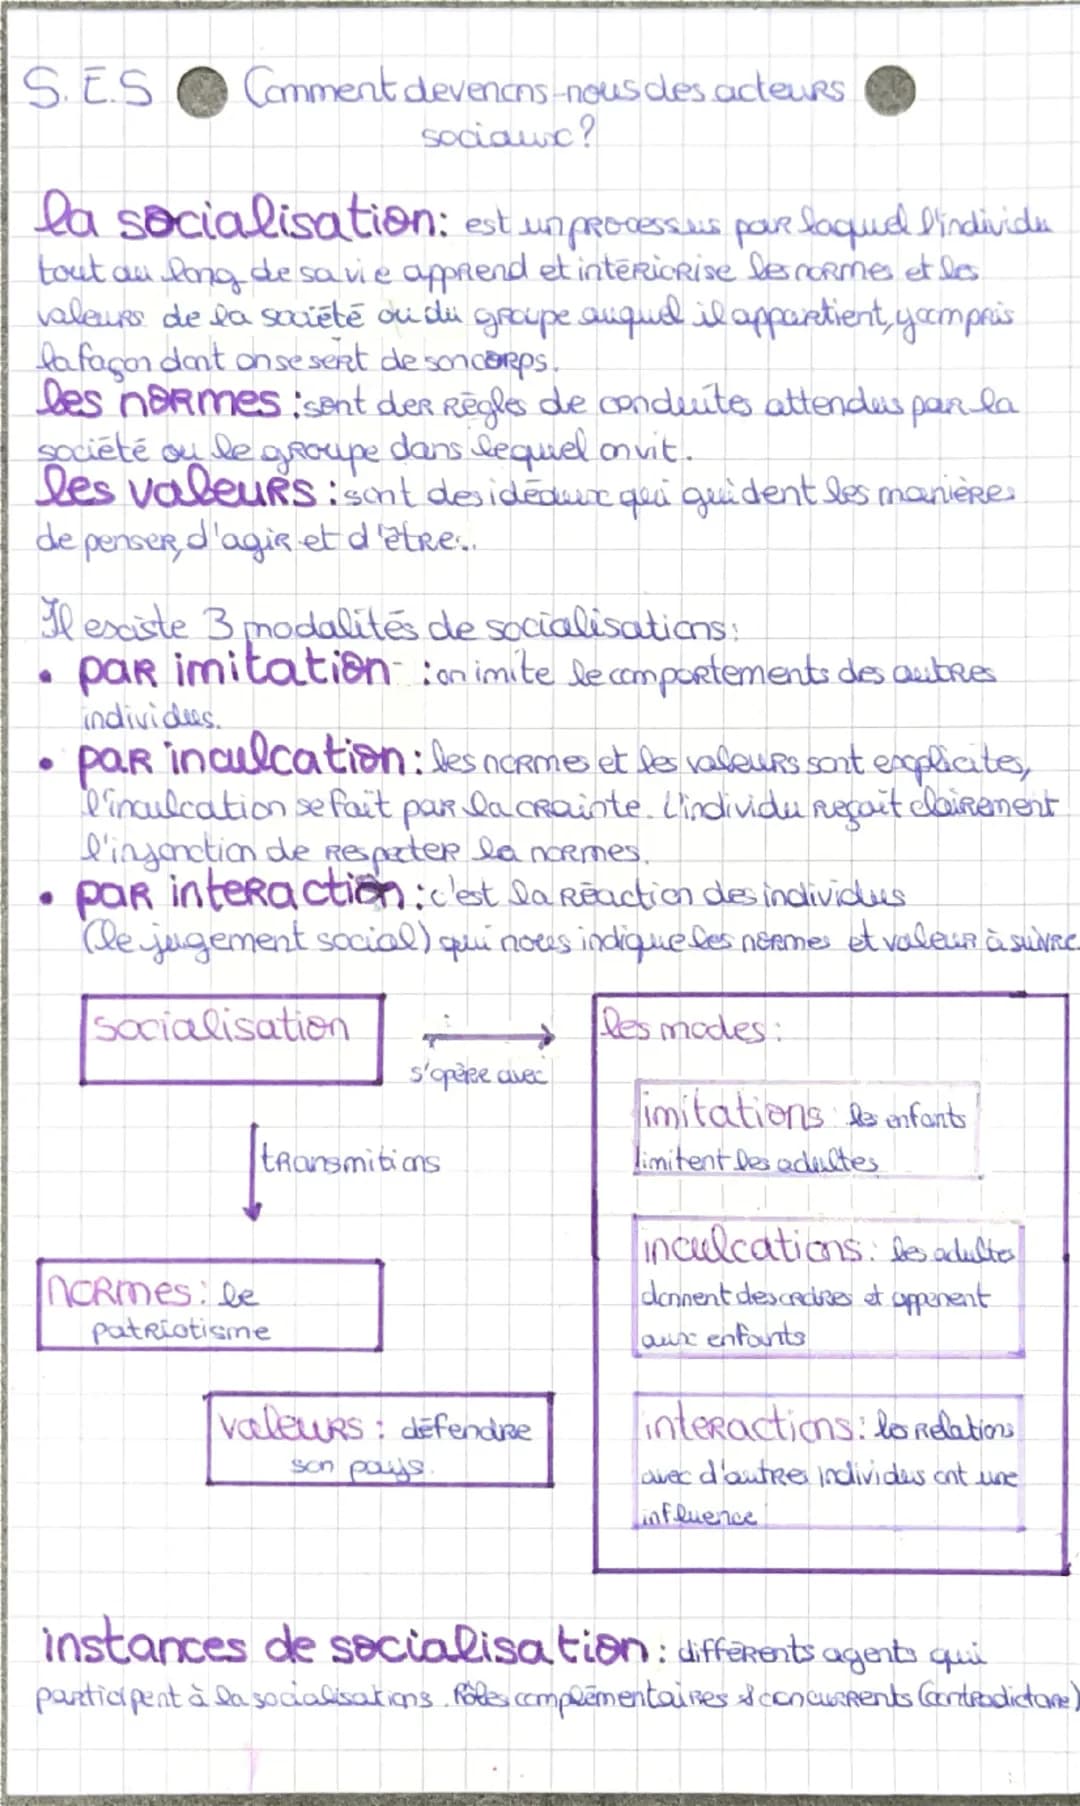 S.E.S Comment devenons-nous des acteurs
sociaux?
la socialisation: est un processus par laquel l'individu
tout au long de sa vie apprend et intériorise les normes et les
valeurs de la société ou du groupe auquel il appartient, y compris
la façon dont on se sert de son corps.
les normes : sont der règles de conduites attendus par la
société ou le groupe dans lequel on vit.
les valeurs : sont des idéaux qui guident les manières
de penser, d'agir et d'être..
Il existe 3 modalités de socialisations:
• par imitation : on imite le comportements des autres
individus.
• par inculcation : les normes et les valeurs sont explicites,
l'inculcation se fait par la crainte. L'individu reçoit clairement
l'injonction de respecter la normes.
• par interaction : c'est la réaction des individus
(le jugement social) qui nous indique les normes et valeur à suivre
socialisation
s'opère avec
les modes :
imitations : les enfants
imitent les adultes
transmitions
inculcations : les adultes
donnent des ordres et apprenent
aux enfants
normes : le
patriotisme
valeurs : défendre
son pays.
interactions : les relations
avec d'autres individus ont une
influence
instances de socialisation : différents agents qui
participent à la socialisations. Rôles complémentaires & concurrents